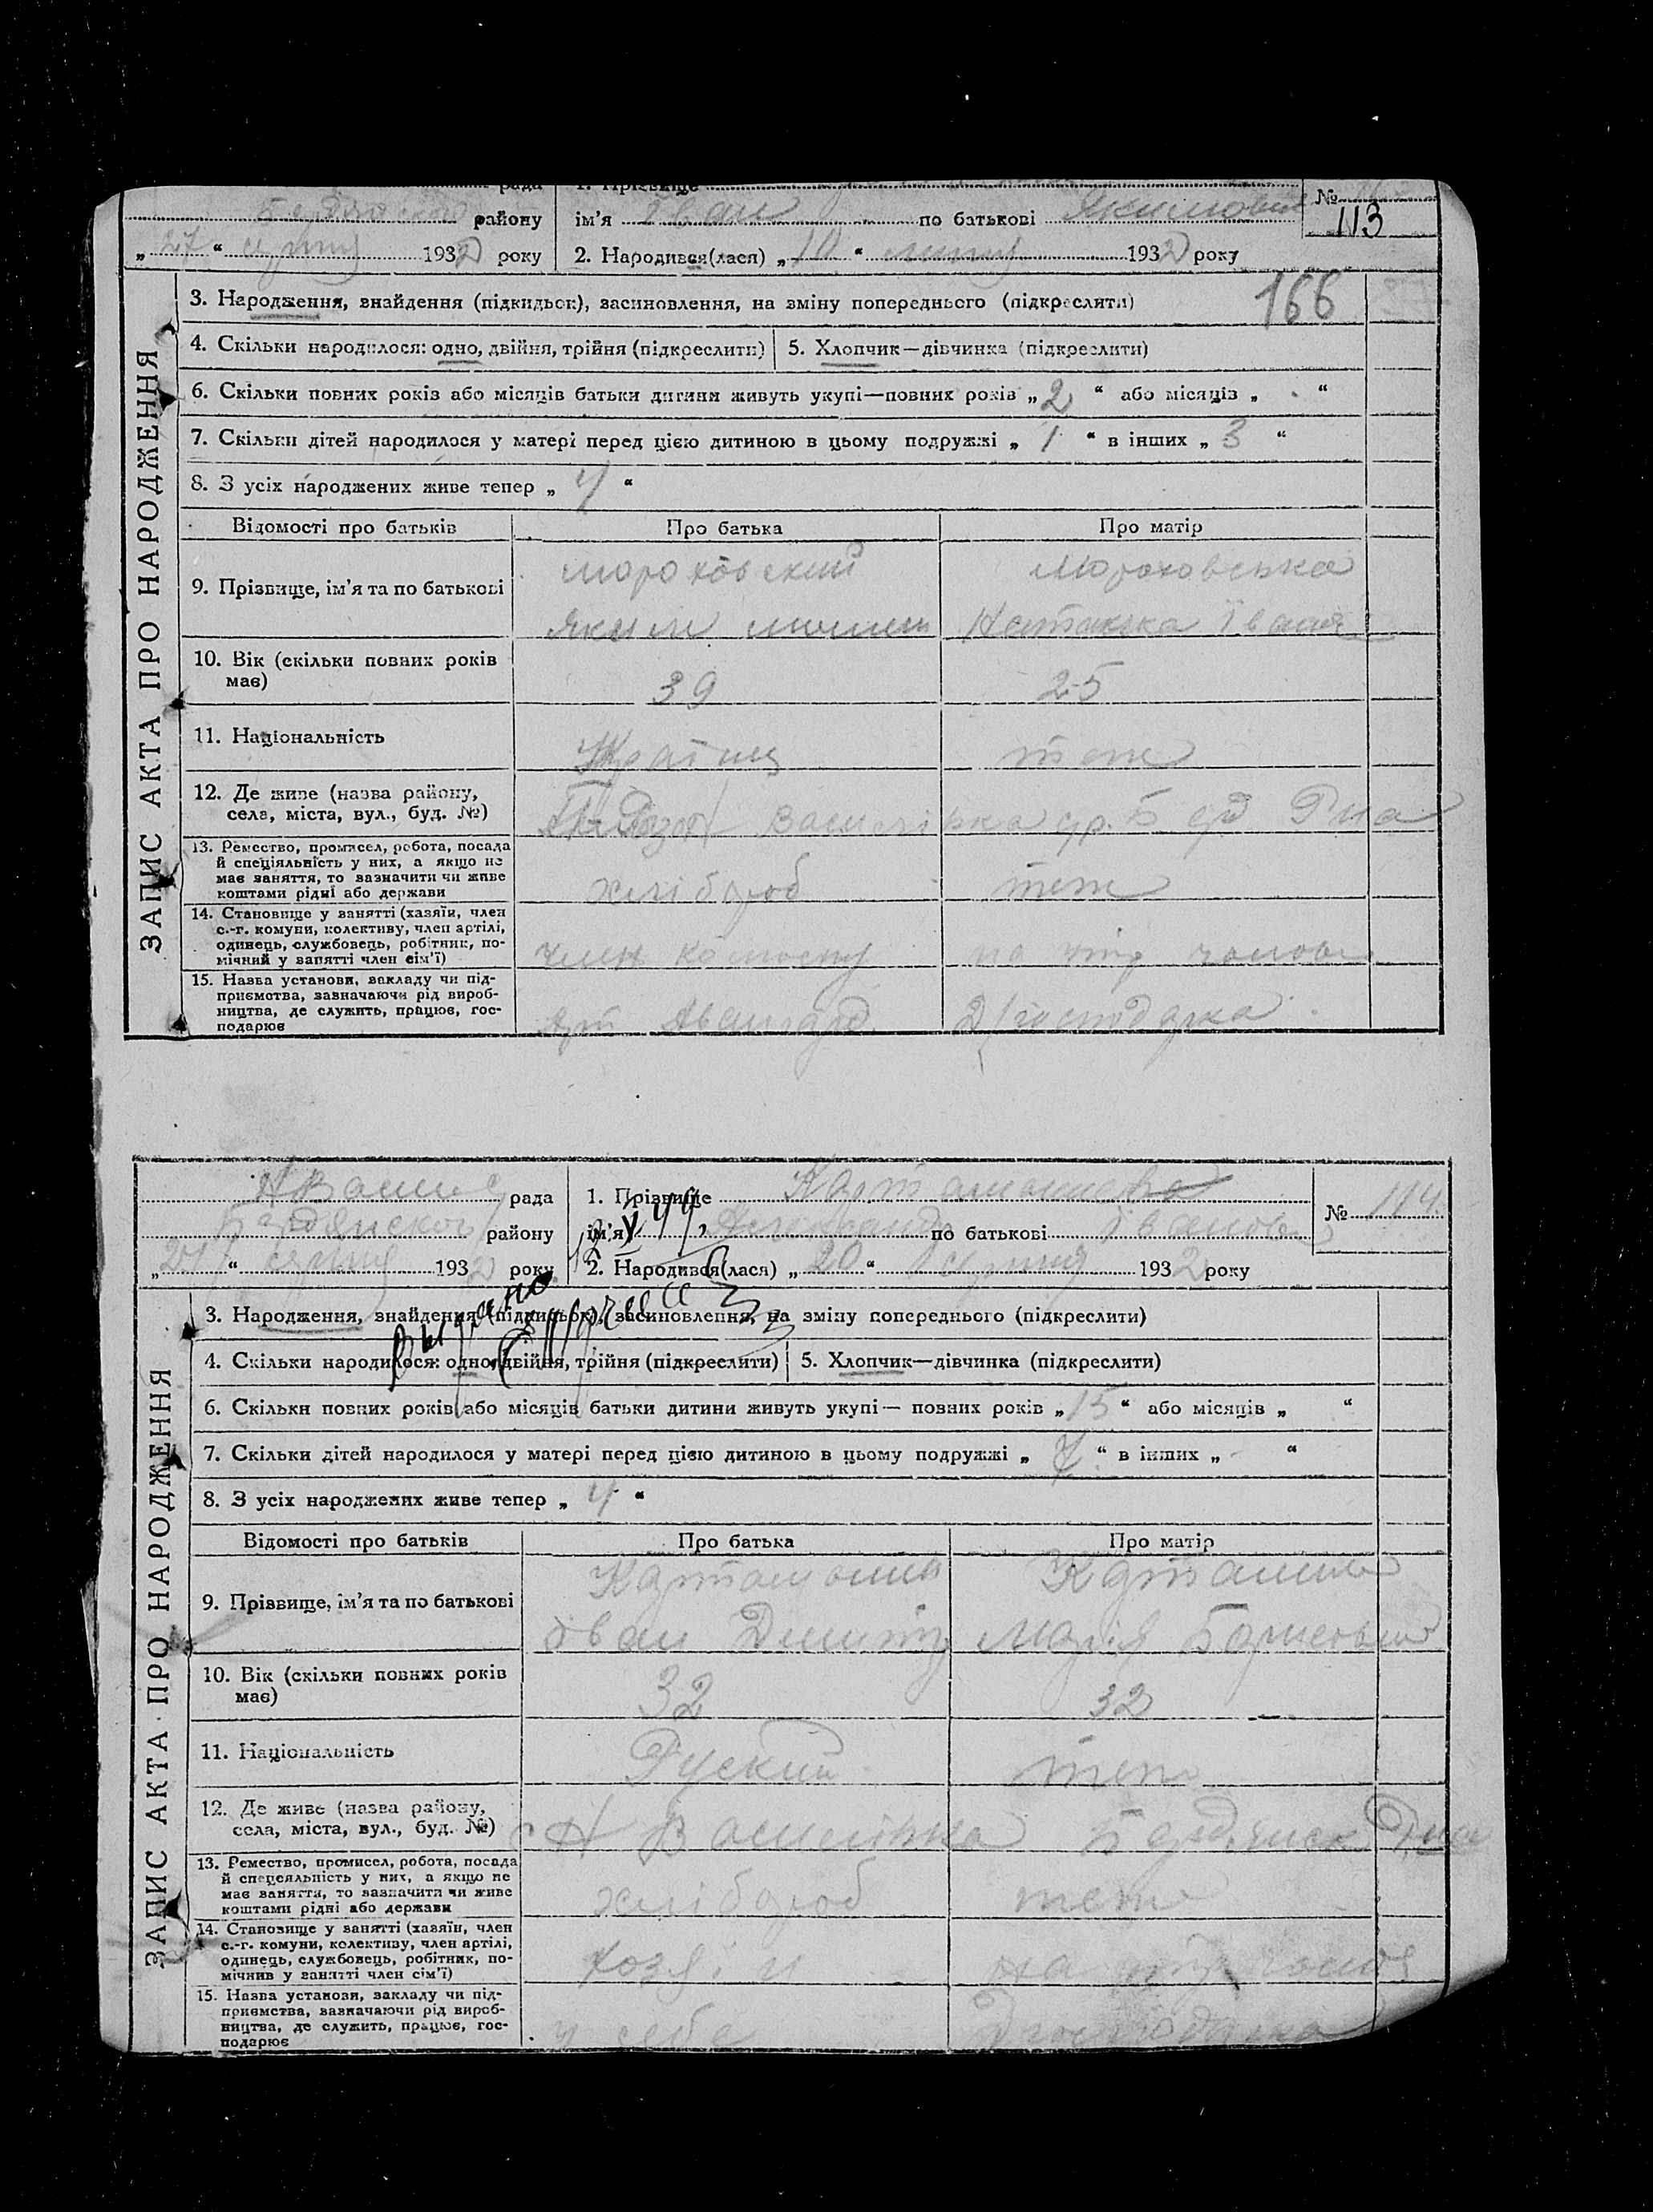 рада 1. Прізвище №
району ім'я Іван по батькові Якимович 113
„27“ серпня 1932 року 2. Народився(лася) „10“ 1932 року
ЗАПИС АКТА ПРО НАРОДЖЕННЯ
3. Народження, знайдення (підкидьок), засиновлення, на зміну попереднього (підкреслити) 166
4. Скільки народилося: одно, двійня, трійня (підкреслити) 5. Хлопчик—дівчинка (підкреслити)
6. Скільки повних років або місяців батьки дитини живуть укупі—повних років „2“ або місяців „ “
7. Скільки дітей народилося у матері перед цією дитиною в цьому подружжі „1“ в інших „3“
8. З усіх народжених живе тепер „4“
Відомості про батьків Про батька Про матір
9. Прізвище, ім'я та по батькові Мороховський Мороховська
Яким Наталка Іванів
10. Вік (скільки повних років має) 39 25
11. Національність Україн теж
12. Де живе (назва району, села, міста, вул., буд. №) Василівка Р-на
13. Ремество, промисел, робота, посада
й спеціяльність у них, а якщо не
має заняття, то зазначити чи живе
коштами рідні або держави хлібороб теж
14. Становище у занятті (хазяїн, член
с.-г. комуни, колективу, член артілі,
одинець, службовець, робітник, по-
мічний у занятті член сім'ї) член колгоспу на утр чолов
15. Назва установи, закладу чи під-
приємства, зазначаючи рід вироб-
ництва, де служить, працює, гос-
подарює Арт Авангард Д/господарка
Н Васил рада 1. Прізвище № 114
Бердянського району ім'я Александр по батькові Іванов
„27“ серпня 1932 року 2. Народився(лася) „20“ серпня 1932 року
ЗАПИС АКТА ПРО НАРОДЖЕННЯ
3. Народження, знайдення (підкидьок), засиновлення, на зміну попереднього (підкреслити)
4. Скільки народилося: одно, двійня, трійня (підкреслити) 5. Хлопчик—дівчинка (підкреслити)
6. Скільки повних років або місяців батьки дитини живуть укупі— повних років „15“ або місяців „ “
7. Скільки дітей народилося у матері перед цією дитиною в цьому подружжі „7“ в інших „-“
8. З усіх народжених живе тепер „4“
Відомості про батьків Про батька Про матір
9. Прізвище, ім'я та по батькові
Іван Дмитр Марія
10. Вік (скільки повних років має) 32 32
11. Національність Руский теж
12. Де живе (назва району, села, міста, вул., буд. №) с Н Василівка Бердянск Р-на
13. Ремество, промисел, робота, посада
й спецеяльність у них, а якщо не
має заняття, то зазначити чи живе
коштами рідні або держави хлібороб теж
14. Становище у занятті (хазяїн, член
с.-г. комуни, колективу, член артілі,
одинець, службовець, робітник, по-
мічнив у занятті член сім'ї) хозяін на утр чолов
15. Назва установи, закладу чи під-
приємства, зазначаючи рід вироб-
ництва, де служить, працює, гос-
подарює у себе Д господарка